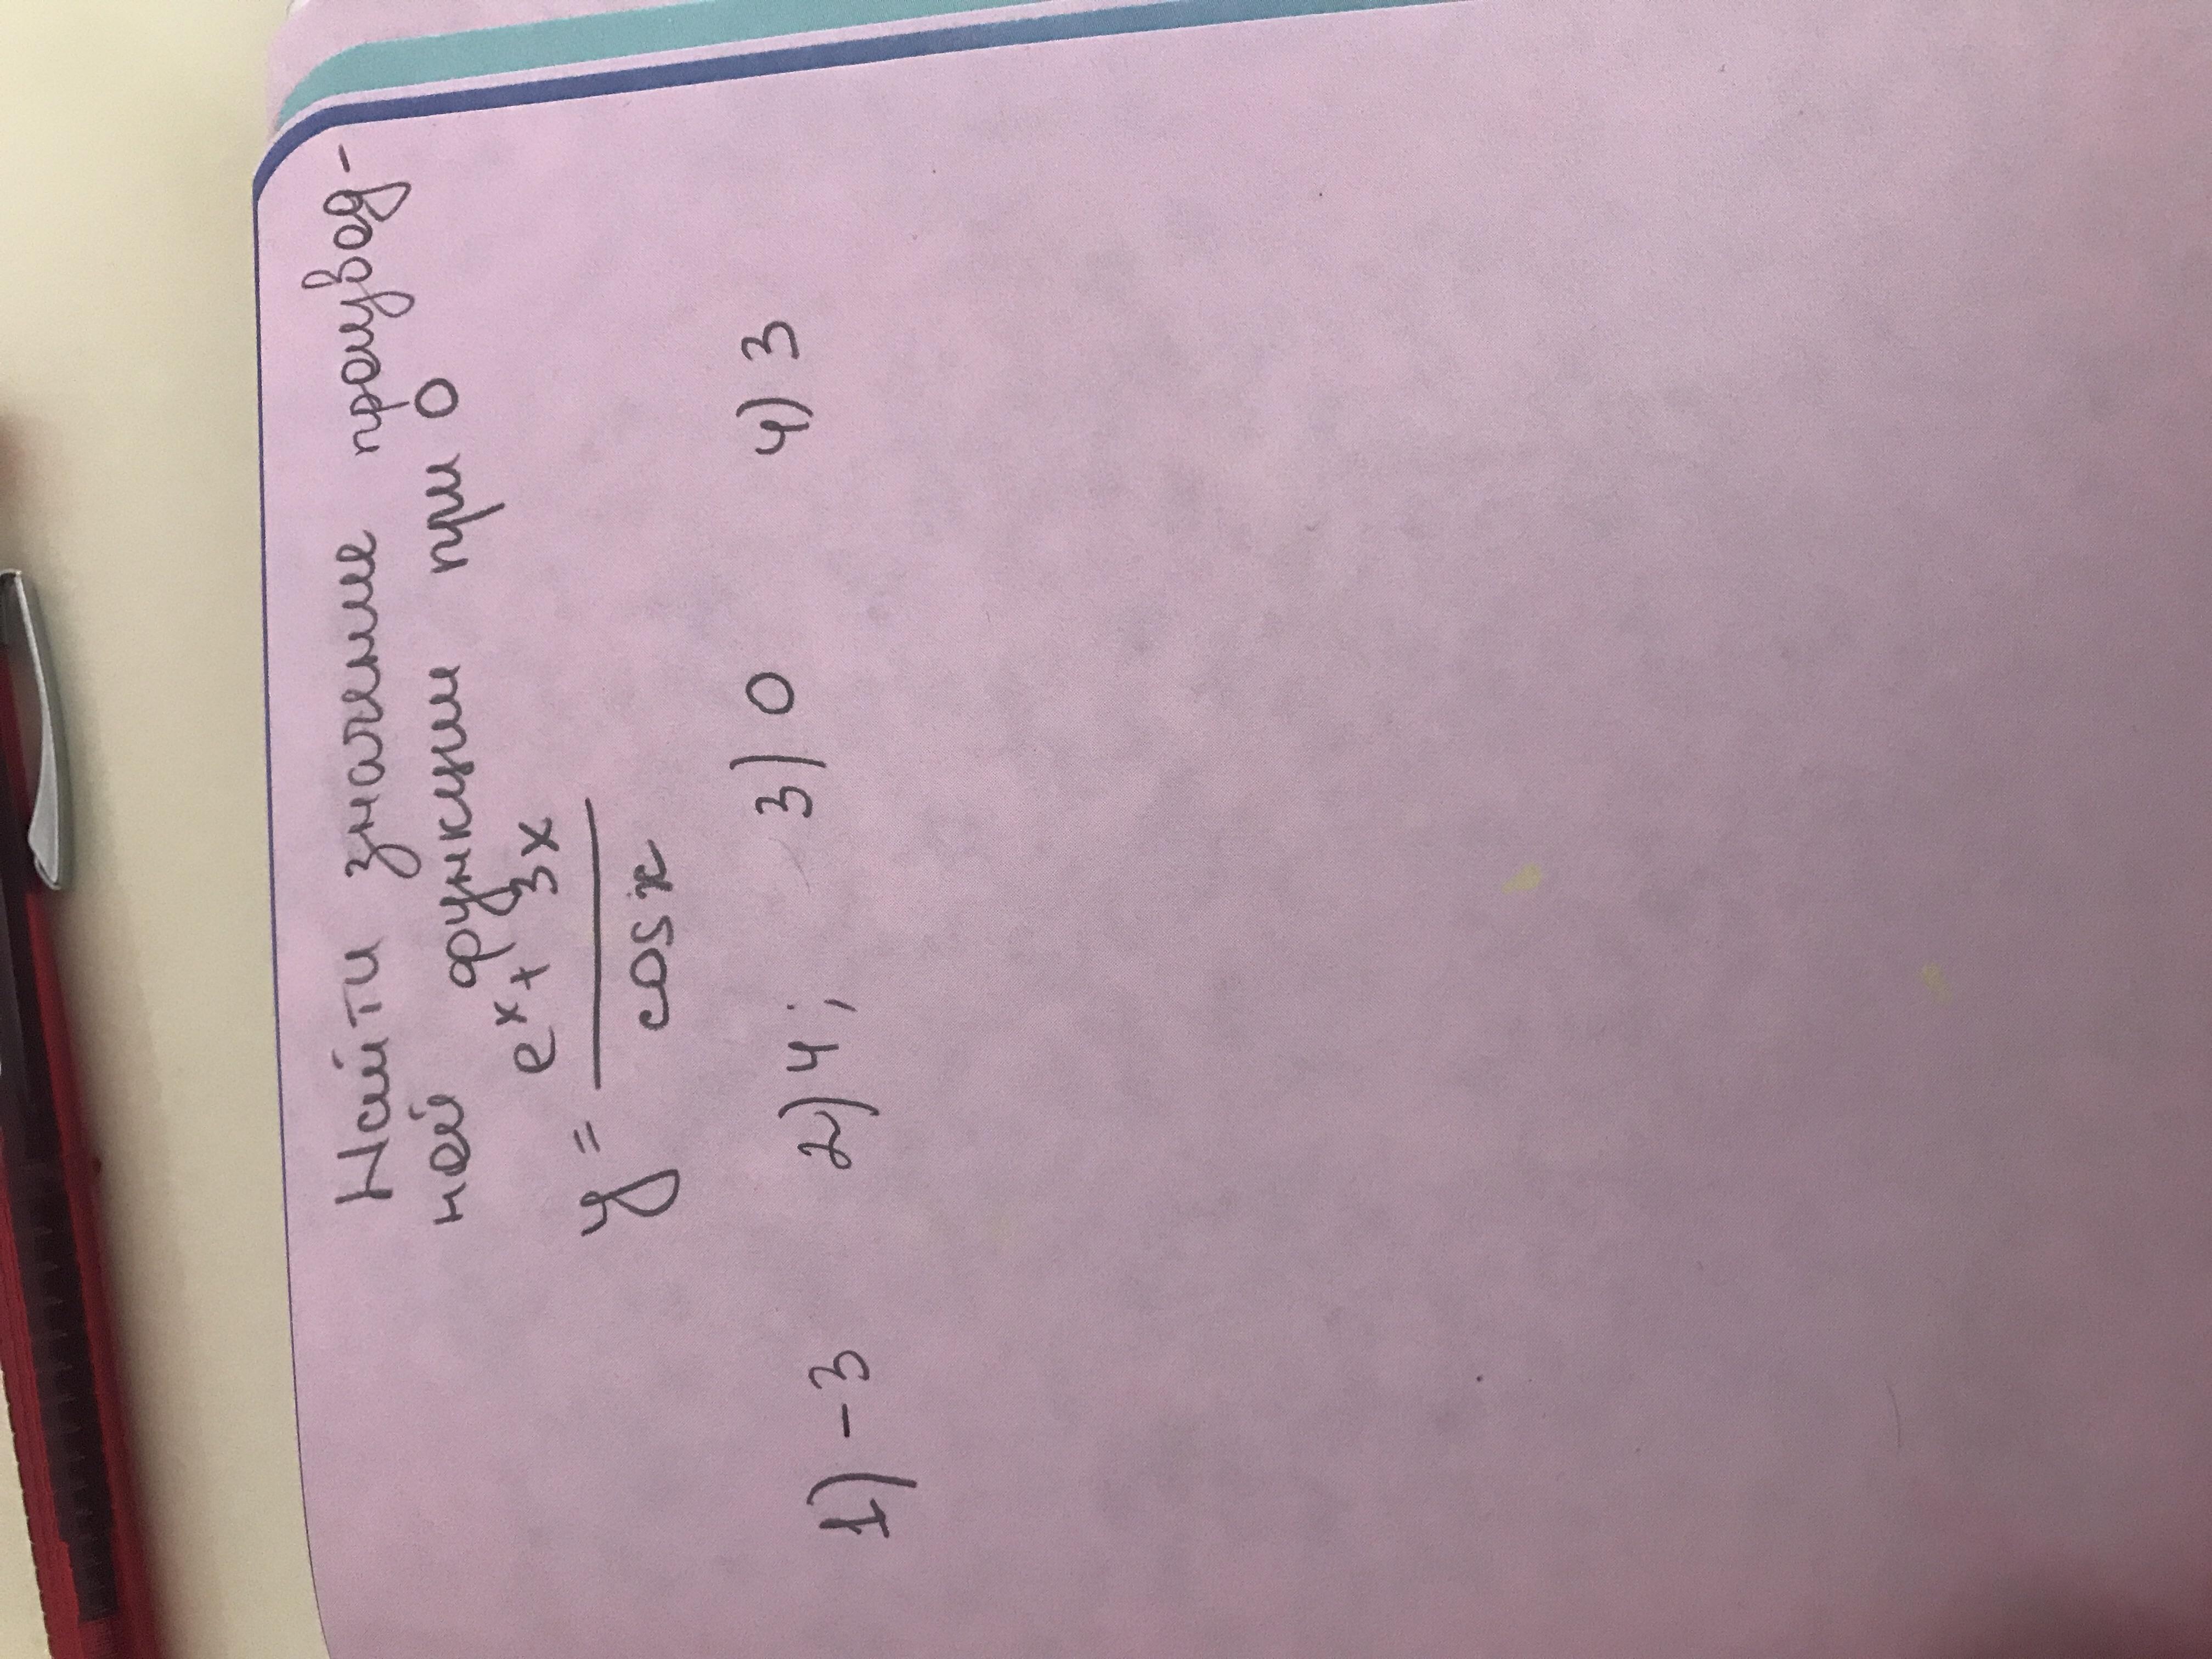 Найти значение производ-
ной функции при 0
y = e^x + 3x / cos x
1) -3 2) 4; 3) 0 4) 3